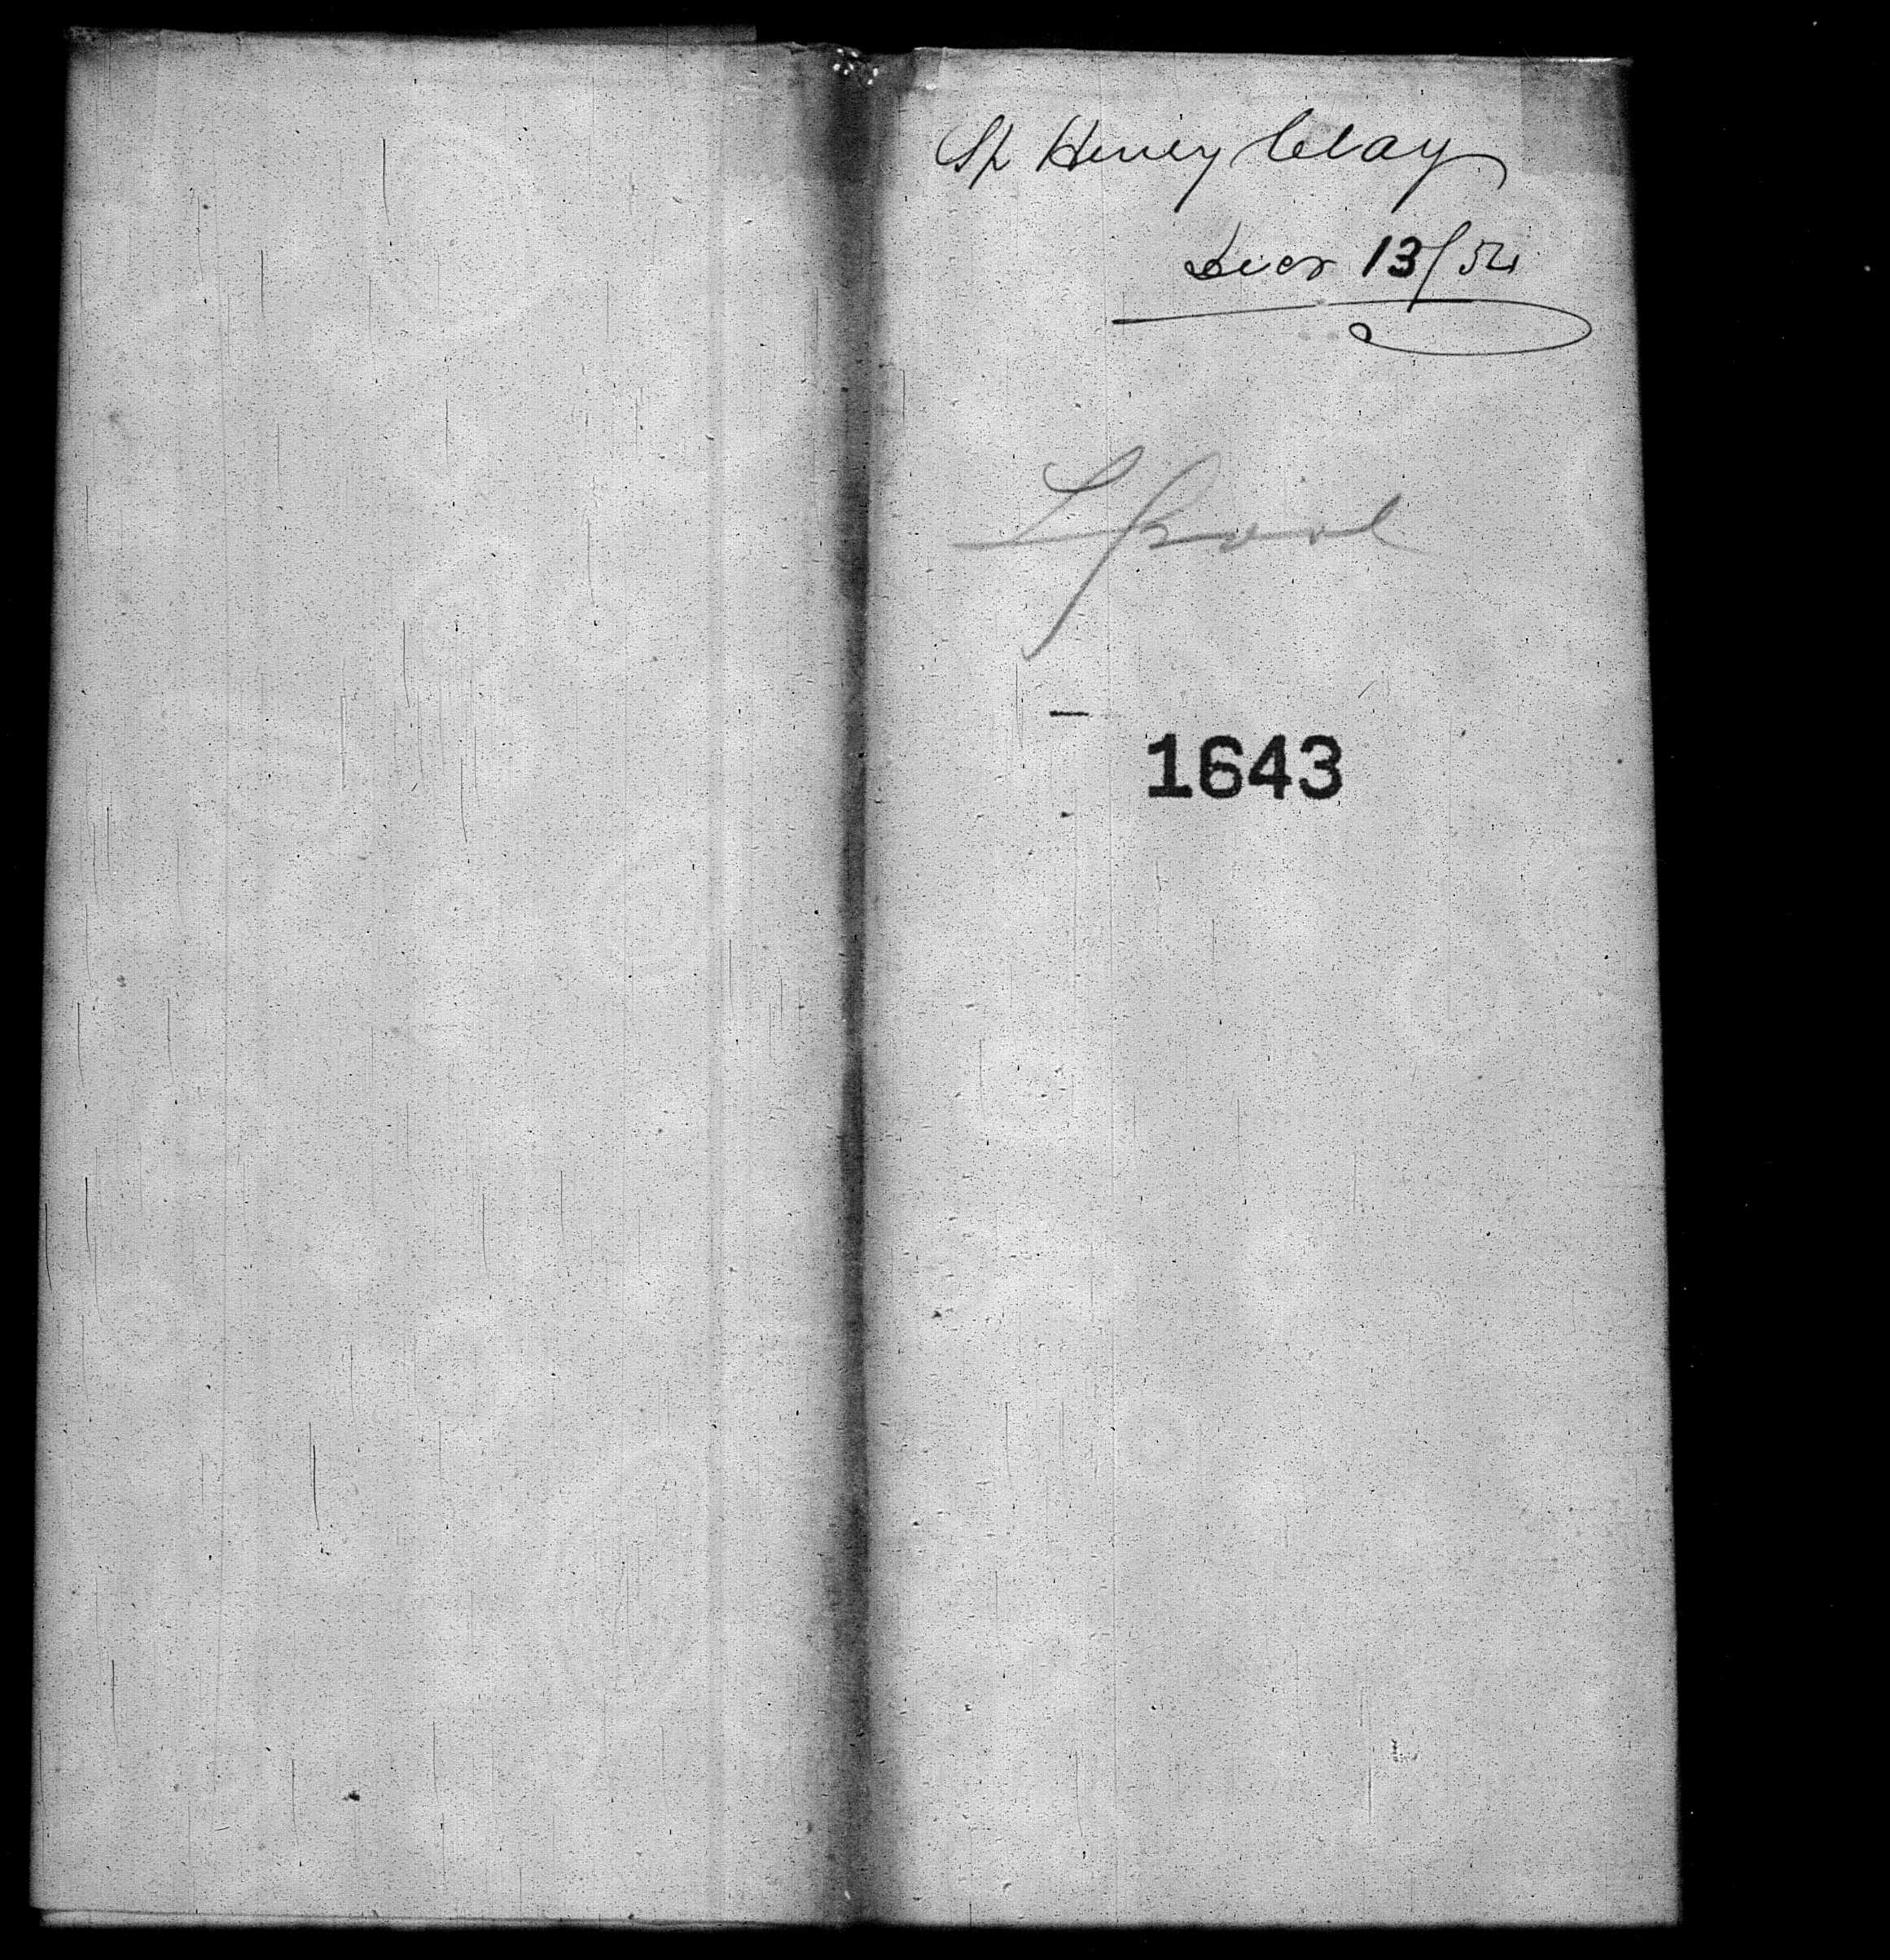 Sp Henry Clay
Decr 13/54
Lpool
1643